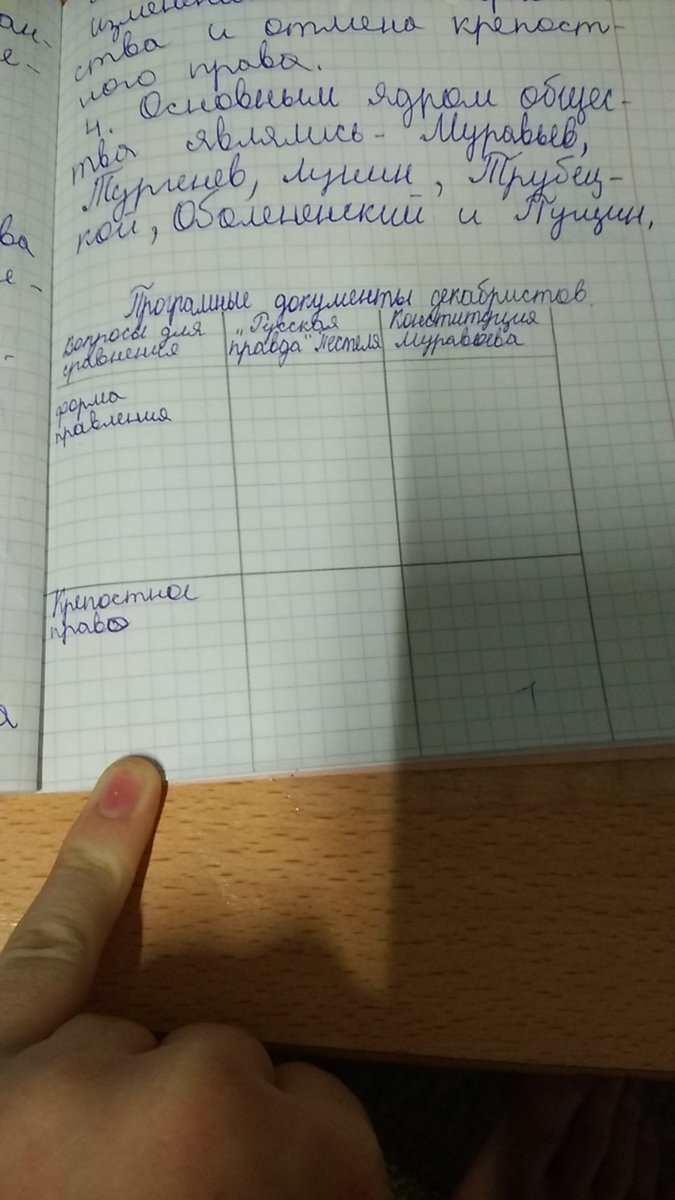 ства и отмена крепост-
ного права.
4. Основным ядром общес-
тва являлись - Муравьев,
Тургенев, Лунин, Трубец-
кой, Оболененский и Пущин.
Програмные документы декабристов.
Вопросы для
сравнения
„Русская
правда" Пестеля
Конституция
Муравьева
форма
правления
Крепостное
право